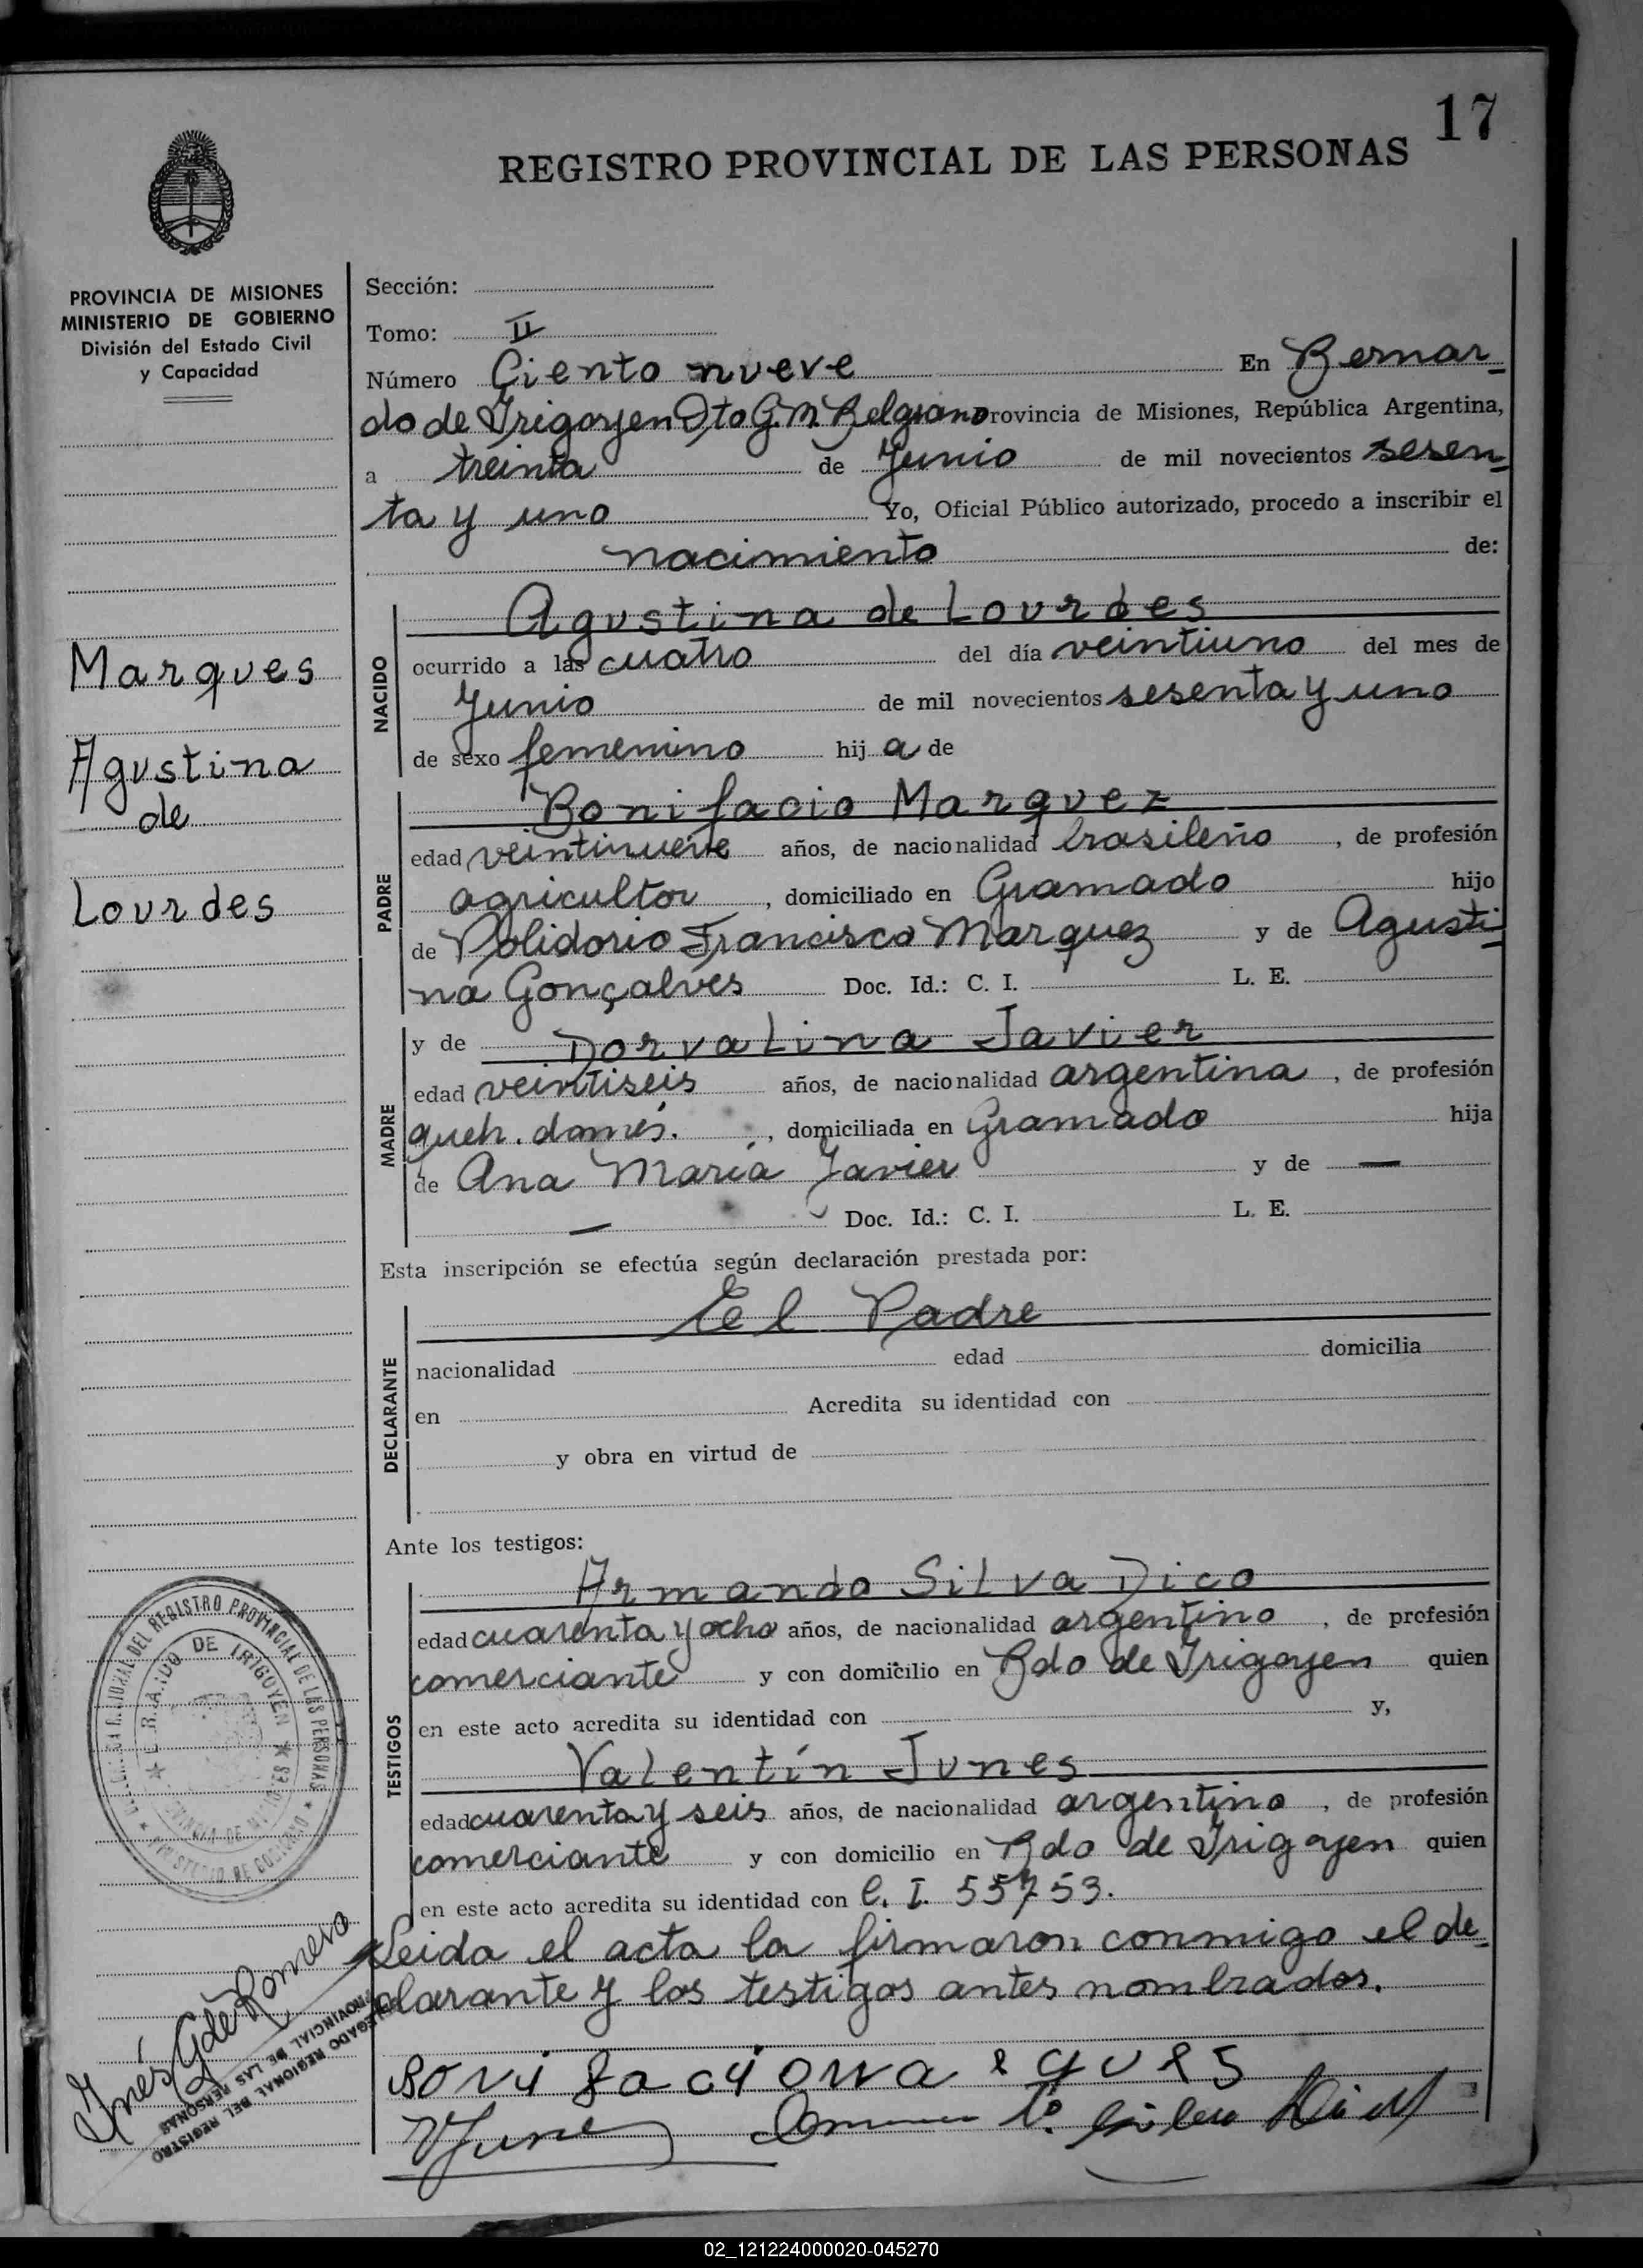 17
REGISTRO PROVINCIAL DE LAS PERSONAS
PROVINCIA DE MISIONES
MINISTERIO DE GOBIERNO
División del Estado Civil
y Capacidad
Marques
Agustina
de
Lourdes
Sección:
Tomo: II
Número Ciento nueve En Bernar-
do de Irigoyen Dto G. M. Belgrano Provincia de Misiones, República Argentina,
a treinta de Junio de mil novecientos sesen-
ta y uno Yo, Oficial Público autorizado, procedo a inscribir el
nacimiento de:
NACIDO
Agustina de Lourdes
ocurrido a las cuatro del día veintiuno del mes de
Junio de mil novecientos sesenta y uno
de sexo femenino hija de
PADRE
Bonifacio Marquez
edad veintinueve años, de nacionalidad brasileño, de profesión
agricultor, domiciliado en Gramado hijo
de Polidorio Francisco Marquez y de Agusti-
na Gonçalves Doc. Id.: C. I. L. E.
MADRE
y de Dorvalina Javier
edad veintiseis años, de nacionalidad argentina, de profesión
queh. domés., domiciliada en Gramado hija
de Ana María Javier y de —
— Doc. Id.: C. I. L. E.
Esta inscripción se efectúa según declaración prestada por:
DECLARANTE
El Padre
nacionalidad edad domicilia
en Acredita su identidad con
y obra en virtud de
Ante los testigos:
TESTIGOS
Armando Silva Dico
edad cuarenta y ocho años, de nacionalidad argentino, de profesión
comerciante y con domicilio en Bdo de Irigoyen quien
en este acto acredita su identidad con y,
Valentín Junes
edad cuarenta y seis años, de nacionalidad argentino, de profesión
comerciante y con domicilio en Bdo de Irigoyen quien
en este acto acredita su identidad con C. I. 55753.
Leida el acta la firmaron conmigo el de-
clarante y los testigos antes nombrados.
DEL REGISTRO PROVINCIAL DE LAS PERSONAS
DE IRIGOYEN
MINISTERIO DE GOBIERNO
Inés G de Romero
DELEGADO REGIONAL DEL REGISTRO
PROVINCIAL DE LAS PERSONAS
02_121224000020-045270